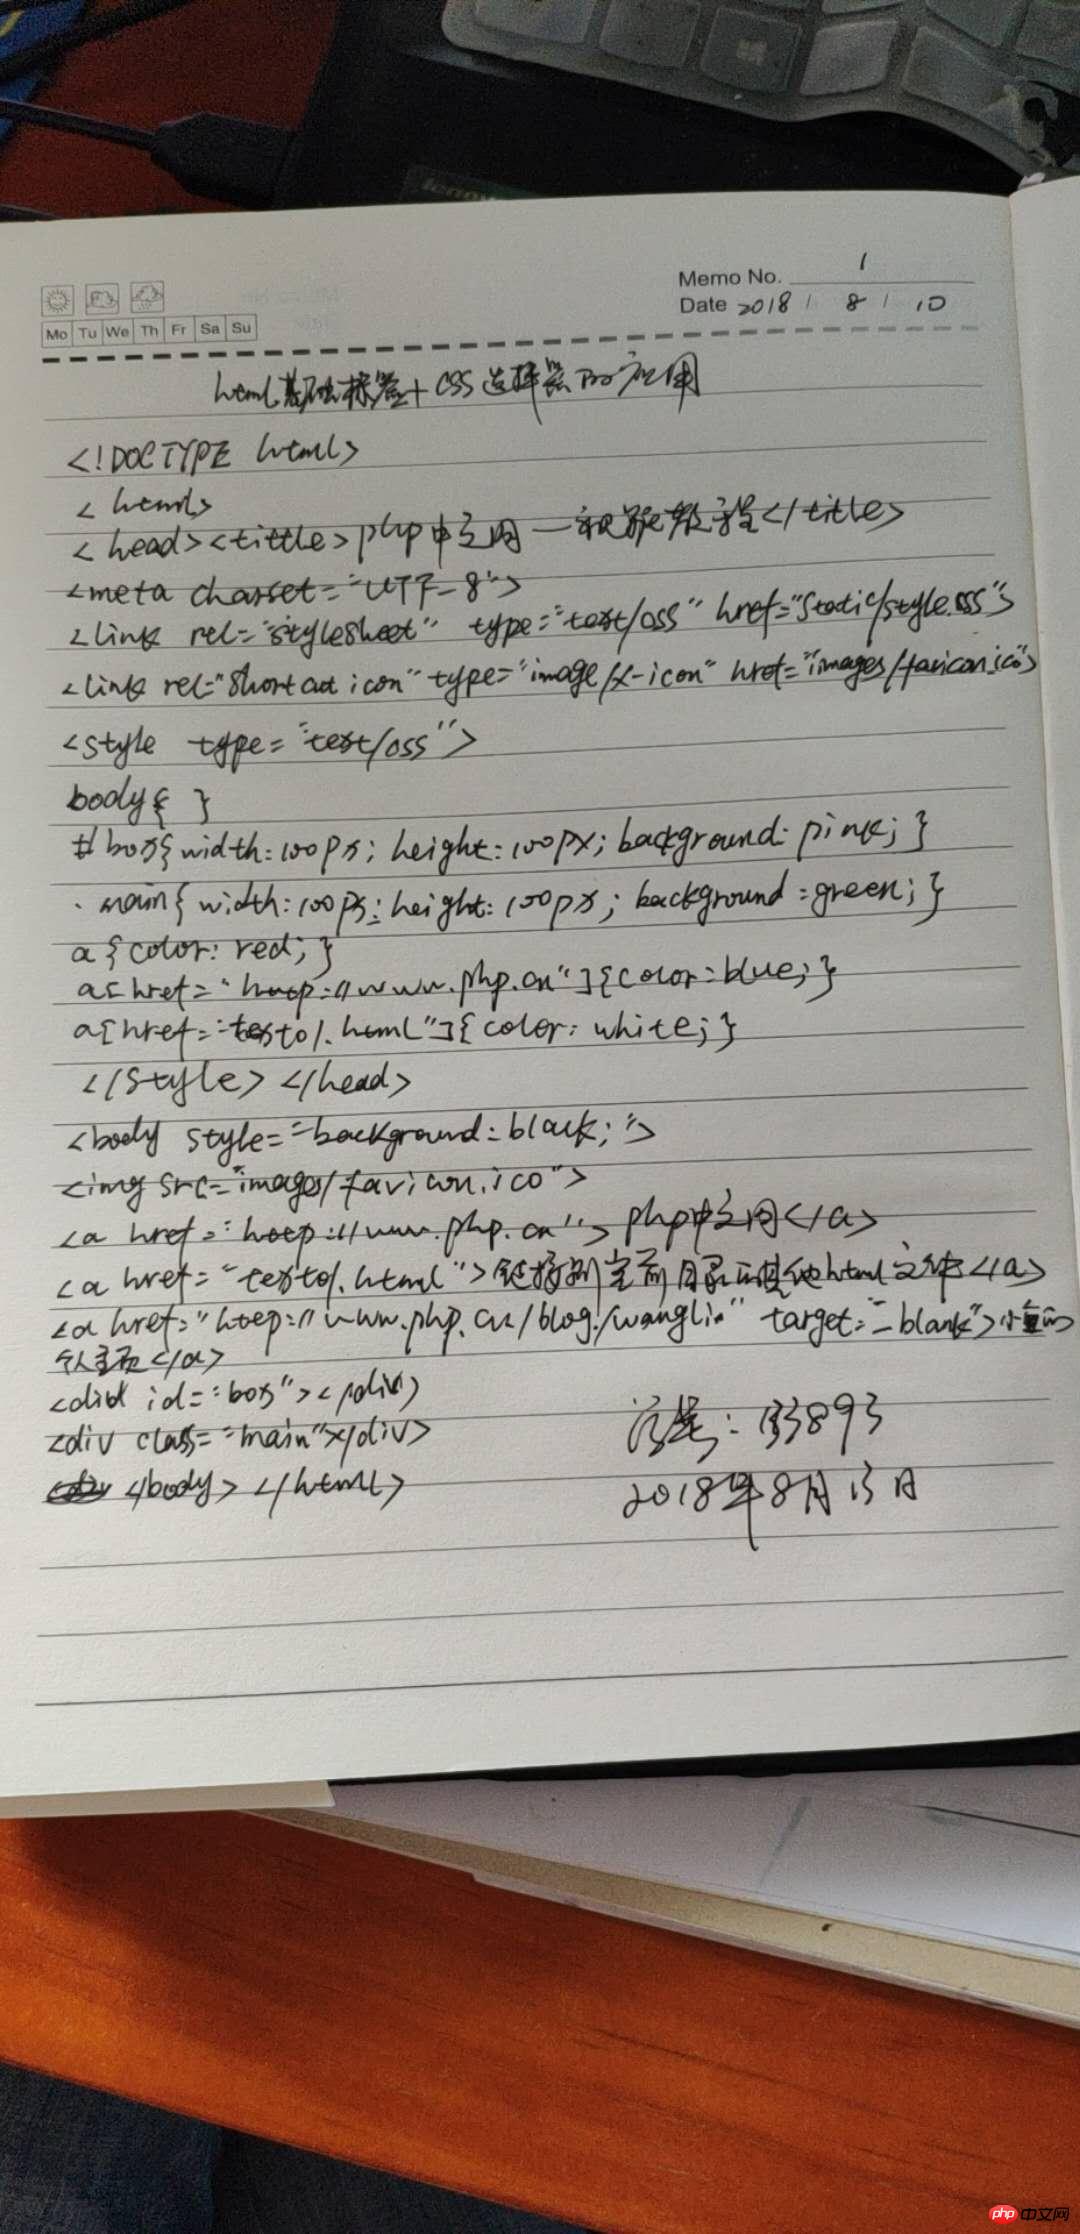 Memo No. 1
Date 2018 / 8 / 10
Mo Tu We Th Fr Sa Su
html基础标签+CSS选择器的应用
<!DOCTYPE html>
<html>
<head><tittle>php中文网一视频教程</title>
<meta charset="UTF-8">
<link rel="stylesheet" type="text/css" href="static/style.css">
<link rel="shortcut icon" type="image/x-icon" href="images/favicon.ico">
<style type="text/css">
body{ }
#box{width:100px; height:100px; background:pink; }
.main{width:100px; height:100px; background:green; }
a{color:red; }
a[href="http://www.php.cn"]{color:blue; }
a[href="test01.html"]{color:white; }
</style></head>
<body style="background:black;">
<img src="images/favicon.ico">
<a href="http://www.php.cn">php中文网</a>
<a href="test01.html">链接到当前目录的其他html文件</a>
<a href="http://www.php.cn/blog/" target="_blank">小鱼的
个人主页</a>
<div id="box"></div>
<div class="main"></div>
</body></html>
编号：133893
2018年8月13日
php 中文网